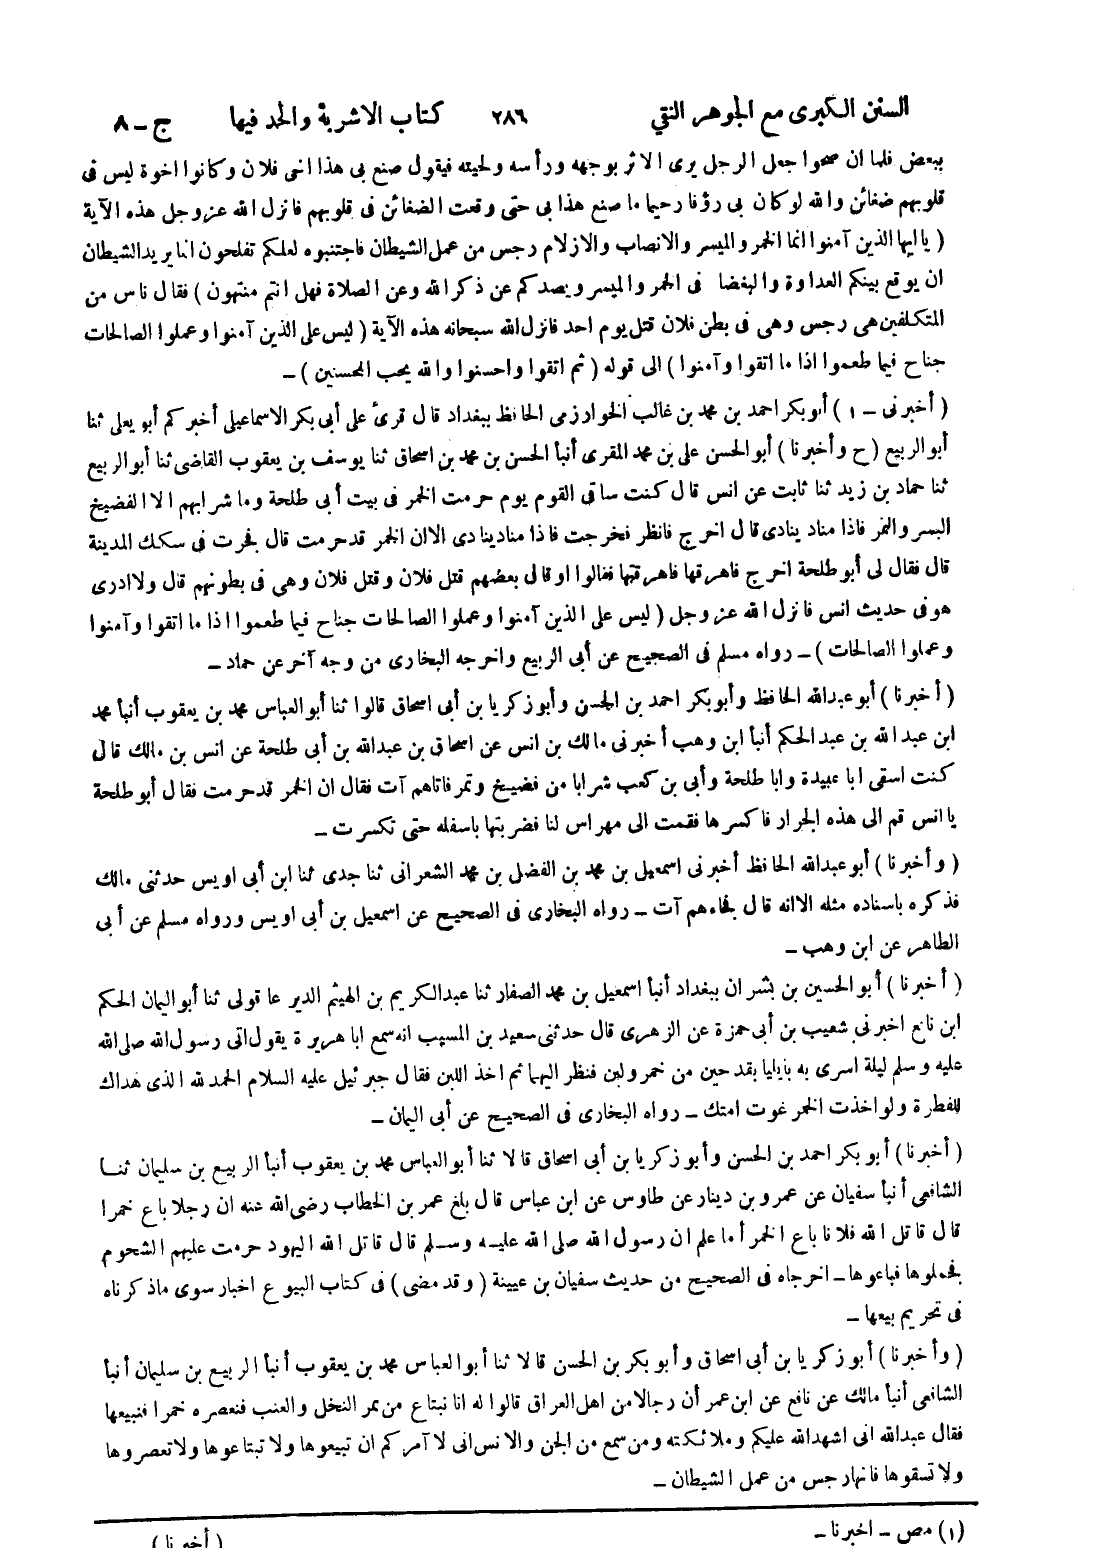 السنن الكبرى مع الجوهر النقي ٢٨٦ كتاب الاشربة والحد فيها ج - ٨
ببعض فلما ان صحوا جعل الرجل يرى الاثر بوجهه ورأسه ولحيته فيقول صنع بى هذا اخى فلان وكانوا اخوة ليس فى
قلوبهم ضغائن والله لوكان بى رؤفا رحيما ما صنع هذا بى حتى وقعت الضغائن فى قلوبهم فانزل الله عزوجل هذه الآية
( ياايها الذين آمنوا انما الخمر والميسر والانصاب والازلام رجس من عمل الشيطان فاجتنبوه لعلكم تفلحون انما يريد الشيطان
ان يوقع بينكم العداوة والبغضا فى الخمر والميسر ويصدكم عن ذكر الله وعن الصلاة فهل انتم منتهون ) فقال ناس من
المتكلفين هى رجس وهى فى بطن فلان قتل يوم احد فانزل الله سبحانه هذه الآية ( ليس على الذين آمنوا وعملوا الصالحات
جناح فيما طعموا اذا ما اتقوا وآمنوا ) الى قوله ( ثم اتقوا واحسنوا والله يحب المحسنين ) -
( أخبرنى - ١ ) أبوبكر احمد بن محمد بن غالب الخوارزمى الحافظ ببغداد قال قرئ على أبى بكر الاسماعيلى أخبركم أبو يعلى ثنا
أبو الربيع ( ح وأخبرنا ) أبو الحسن على بن محمد المقرى أنبأ الحسن بن محمد بن اسحاق ثنا يوسف بن يعقوب القاضى ثنا أبو الربيع
ثنا حماد بن زيد ثنا ثابت عن انس قال كنت ساقى القوم يوم حرمت الخمر فى بيت أبى طلحة وما شرابهم الا الفضيخ
البسر والتمر فاذا مناد ينادى قال اخرج فانظر فخرجت فاذا مناد ينادى الاان الخمر قد حرمت قال فجرت فى سكك المدينة
قال فقال لى أبو طلحة اخرج فاهرقها فاهرقتها فقالوا او قال بعضهم قتل فلان وقتل فلان وهى فى بطونهم قال ولا ادرى
هو فى حديث انس فانزل الله عزوجل ( ليس على الذين آمنوا وعملوا الصالحات جناح فيما طعموا اذا ما اتقوا وآمنوا
وعملوا الصالحات ) - رواه مسلم فى الصحيح عن أبى الربيع واخرجه البخارى من وجه آخر عن حماد -
( أخبرنا ) أبو عبدالله الحافظ وأبوبكر احمد بن الحسن وأبو زكريا بن أبى اسحاق قالوا ثنا أبو العباس محمد بن يعقوب أنبأ محمد
ابن عبد الله بن عبد الحكم أنبأ ابن وهب أخبرنى مالك بن انس عن اسحاق بن عبدالله بن أبى طلحة عن انس بن مالك قال
كنت اسقى ابا عبيدة وابا طلحة وأبى بن كعب شرابا من فضيخ وتمر فاتاهم آت فقال ان الخمر قد حرمت فقال أبو طلحة
يا انس قم الى هذه الجرار فاكسرها فقمت الى مهراس لنا فضربتها باسفله حتى تكسرت -
( وأخبرنا ) أبو عبدالله الحافظ أخبرنى اسمعيل بن محمد بن الفضل بن محمد الشعرانى ثنا جدى ثنا ابن أبى اويس حدثنى مالك
فذكره باسناده مثله الا انه قال فجاءهم آت - رواه البخارى فى الصحيح عن اسمعيل بن أبى اويس ورواه مسلم عن أبى
الطاهر عن ابن وهب -
( أخبرنا ) أبو الحسين بن بشران ببغداد أنبأ اسمعيل بن محمد الصفار ثنا عبدالكريم بن الهيثم الديرعاقولى ثنا أبو اليمان الحكم
ابن نافع اخبرنى شعيب بن أبى حمزة عن الزهرى قال حدثنى سعيد بن المسيب انه سمع ابا هريرة يقول اتى رسول الله صلى الله
عليه وسلم ليلة اسرى به بايليا بقدحين من خمر ولبن فنظر اليهما ثم اخذ اللبن فقال جبرئيل عليه السلام الحمد لله الذى هداك
للفطرة ولو اخذت الخمر غوت امتك - رواه البخارى فى الصحيح عن أبى اليمان -
( أخبرنا ) أبو بكر احمد بن الحسن وأبو زكريا بن أبى اسحاق قالا ثنا أبو العباس محمد بن يعقوب أنبأ الربيع بن سليمان ثنا
الشافعى أنبأ سفيان عن عمرو بن دينار عن طاوس عن ابن عباس قال بلغ عمر بن الخطاب رضى الله عنه ان رجلا باع خمرا
قال قاتل الله فلانا باع الخمر أما علم ان رسول الله صلى الله عليه وسلم قال قاتل الله اليهود حرمت عليهم الشحوم
فجملوها فباعوها - اخرجاه فى الصحيح من حديث سفيان بن عيينة ( وقد مضى ) فى كتاب البيوع اخبار سوى ما ذكرناه
فى تحريم بيعها -
( وأخبرنا ) أبو زكريا بن أبى اسحاق وأبو بكر بن الحسن قالا ثنا أبو العباس محمد بن يعقوب أنبأ الربيع بن سليمان أنبأ
الشافعى أنبأ مالك عن نافع عن ابن عمر أن رجالا من اهل العراق قالوا له انا نبتاع من ثمر النخل والعنب فنعصره خمرا فنبيعها
فقال عبدالله انى اشهد الله عليكم وملائكته ومن سمع من الجن والانس انى لا آمركم ان تبيعوها ولا تبتاعوها ولا تعصروها
ولا تسقوها فانها رجس من عمل الشيطان -
(١) مص - اخبرنا -
( أخبرنا )